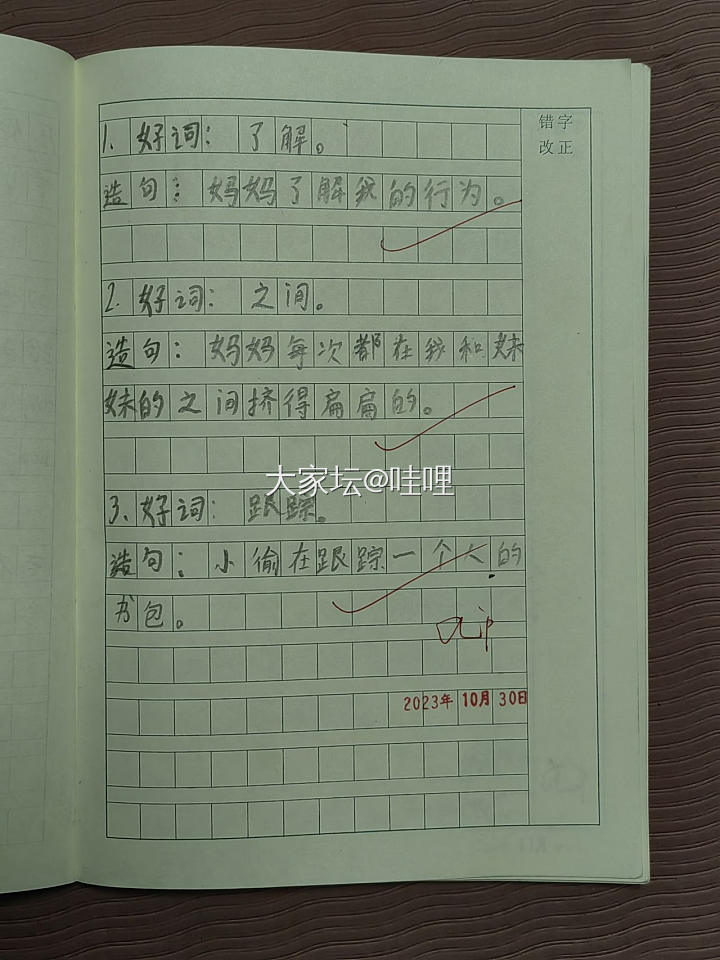 错字
改正
1. 好词：了解。
造句：妈妈了解我的行为。
2. 好词：之间。
造句：妈妈每次都在我和妹
妹的之间挤得扁扁的。
大家坛@哇哩
3、好词：跟踪。
造句：小偷在跟踪一个人的
书包。
2023年 10月 30日